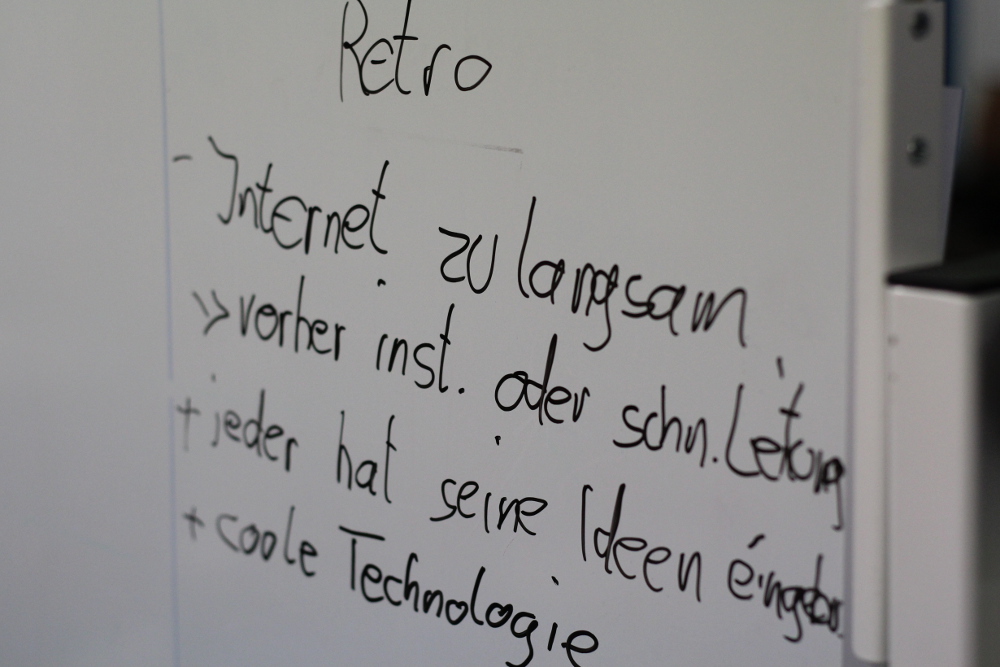 Retro
- Internet zu langsam
>> vorher inst. oder schn. Leitung
+ jeder hat seine Ideen eingebr.
+ coole Technologie